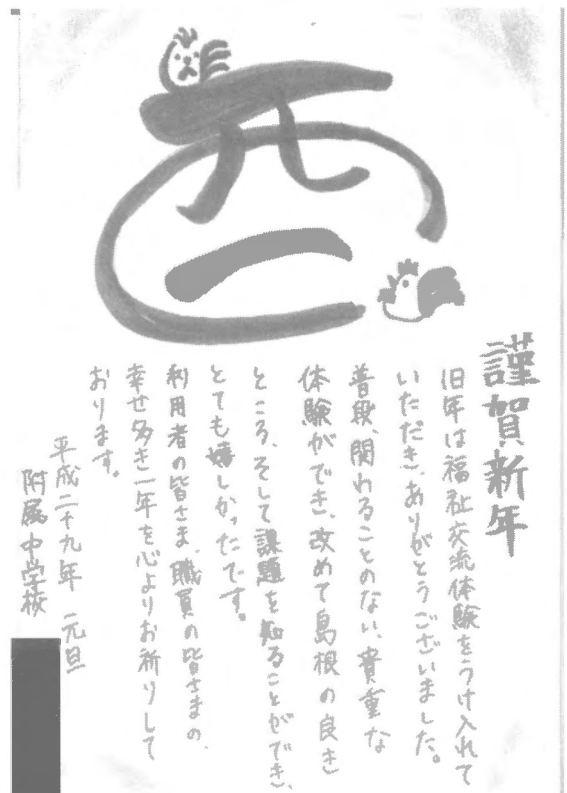 酉
謹賀新年
旧年は福祉交流体験をうけ入れて
いただき、ありがとうございました。
普段、関わることのない、貴重な
体験ができ、改めて島根の良き
ところ、そして課題を知ることができ、
とても嬉しかったです。
利用者の皆さま、職員の皆さまの、
幸せ多き一年を心よりお祈りして
おります。
平成二十九年 元旦
附属中学校